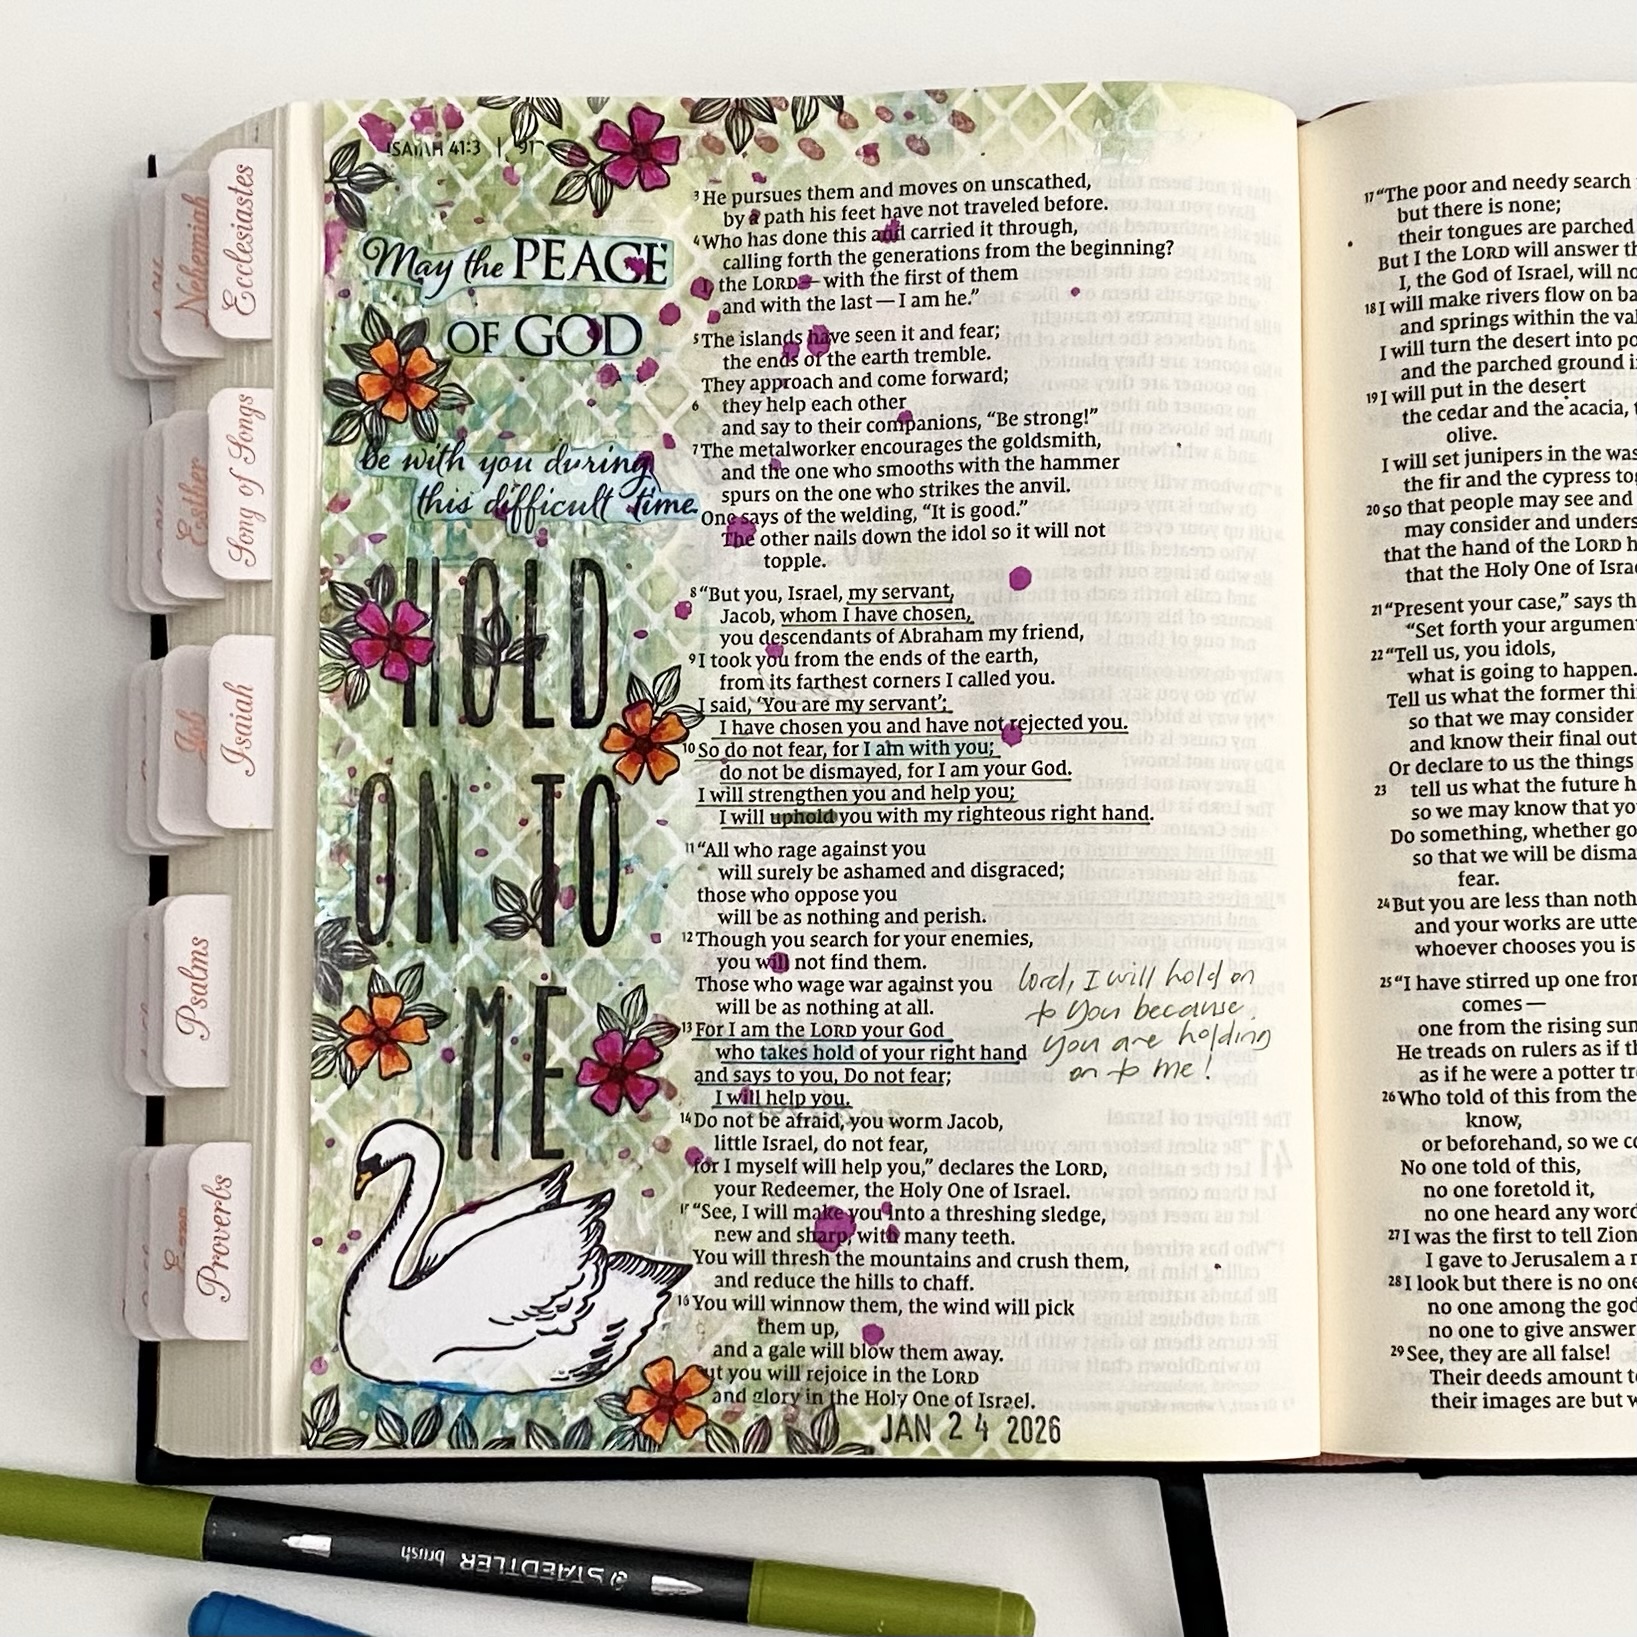 ISAIAH 41:3
Nehemiah
Ecclesiastes
Esther
Song of Songs
Job
Isaiah
Psalms
Proverbs
May the PEACE
OF GOD
be with you during
this difficult time.
HOLD
ON TO
ME
3 He pursues them and moves on unscathed,
by a path his feet have not traveled before.
4 Who has done this and carried it through,
calling forth the generations from the beginning?
I, the LORD — with the first of them
and with the last — I am he.”
5 The islands have seen it and fear;
the ends of the earth tremble.
They approach and come forward;
6 they help each other
and say to their companions, “Be strong!”
7 The metalworker encourages the goldsmith,
and the one who smooths with the hammer
spurs on the one who strikes the anvil.
One says of the welding, “It is good.”
The other nails down the idol so it will not
topple.
8 “But you, Israel, my servant,
Jacob, whom I have chosen,
you descendants of Abraham my friend,
9 I took you from the ends of the earth,
from its farthest corners I called you.
I said, ‘You are my servant’;
I have chosen you and have not rejected you.
10 So do not fear, for I am with you;
do not be dismayed, for I am your God.
I will strengthen you and help you;
I will uphold you with my righteous right hand.
11 “All who rage against you
will surely be ashamed and disgraced;
those who oppose you
will be as nothing and perish.
12 Though you search for your enemies,
you will not find them.
Those who wage war against you
will be as nothing at all.
13 For I am the LORD your God
who takes hold of your right hand
and says to you, Do not fear;
I will help you.
14 Do not be afraid, you worm Jacob,
little Israel, do not fear,
for I myself will help you,” declares the LORD,
your Redeemer, the Holy One of Israel.
15 “See, I will make you into a threshing sledge,
new and sharp, with many teeth.
You will thresh the mountains and crush them,
and reduce the hills to chaff.
16 You will winnow them, the wind will pick
them up,
and a gale will blow them away.
But you will rejoice in the LORD
and glory in the Holy One of Israel.
Lord, I will hold on
to you because
you are holding
on to me!
JAN 24 2026
17 “The poor and needy search
but there is none;
their tongues are parched
But I the LORD will answer
I, the God of Israel, will
18 I will make rivers flow on
and springs within the
I will turn the desert into
and the parched ground
19 I will put in the desert
the cedar and the acacia,
olive.
I will set junipers in the
the fir and the cypress
20 so that people may see and
may consider and
that the hand of the LORD
that the Holy One of
21 “Present your case,” says
“Set forth your
22 “Tell us, you idols,
what is going to happen.
Tell us what the former
so that we may consider
and know their final
Or declare to us the things
23 tell us what the future
so we may know that
Do something, whether
so that we will be
fear.
24 But you are less than
and your works are
whoever chooses you is
25 “I have stirred up one
comes —
one from the rising
He treads on rulers as if
as if he were a potter
26 Who told of this from the
know,
or beforehand, so we
No one told of this,
no one foretold it,
no one heard any
27 I was the first to tell
I gave to Jerusalem a
28 I look but there is no one
no one among the
no one to give answer
29 See, they are all false!
Their deeds amount
their images are but
STAEDTLER brush